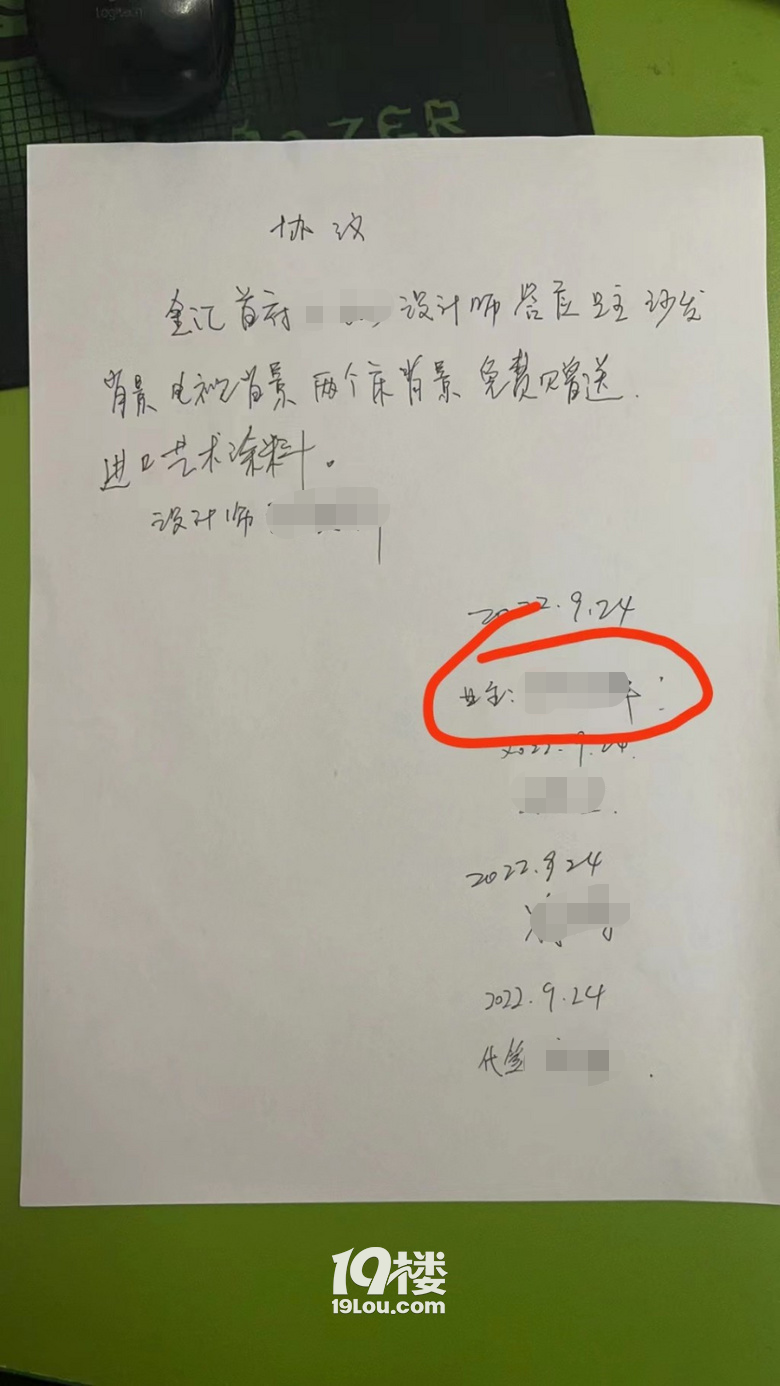 Logitech
RAZER
协议
金汇首府 设计师 答应业主 沙发
背景 电视背景 两个床背景 免费赠送.
进口艺术涂料。
设计师
2022.9.24
业主:
2022.9.24
2022.9.24
2022.9.24
代签
19楼
19Lou.com